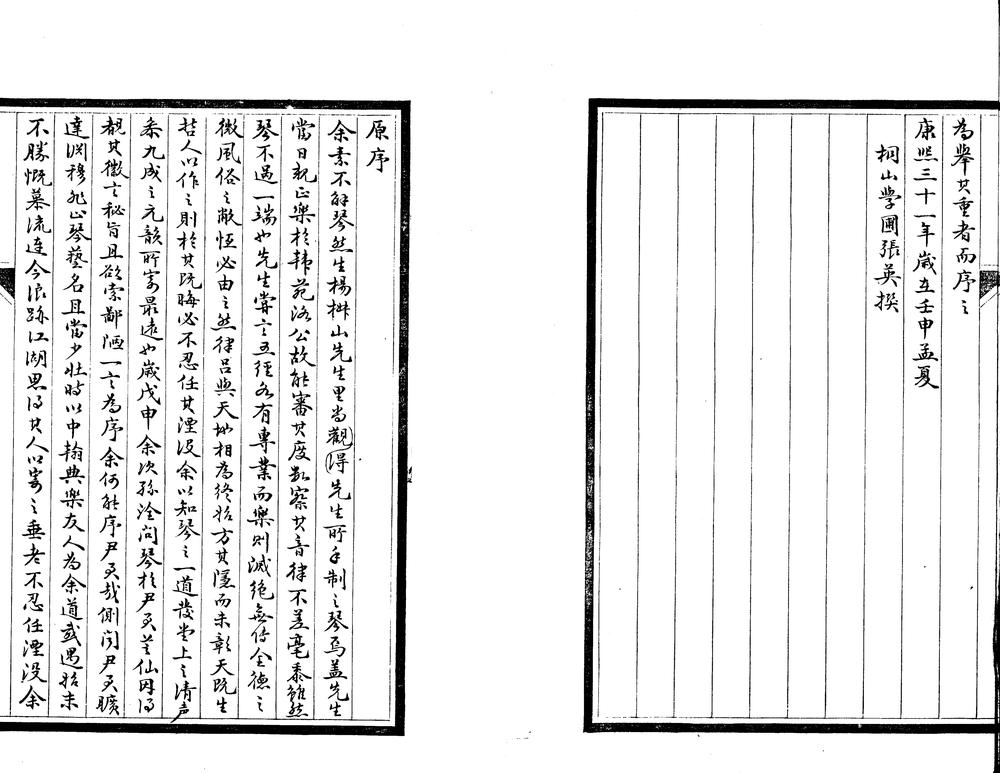 為舉其重者而序之
康熙三十一年歲在壬申孟夏
桐山學圃張英撰
原序
余素不解琴然生楊椒山先生里當觀得先生所手制之琴焉盖先生
當日親正樂於韓苑洛公故能審其度數察其音律不差毫黍雖然
琴不過一端也先生嘗言五經各有專業而樂則滅絕無傳全德之
微風俗之敝恆必由之然律呂與天地相為終始方其隱而未彰天既生
哲人以作之則於其既晦必不忍任其湮没余以知琴之一道發堂上之清聲
奏九成之元韻所寄最遠也歲戊申余次孫淦問琴於尹夫芝仙因得
覩其徽言秘旨且欲索鄙陋一言為序余何能序尹夫哉側聞尹夫曠
達淵穆非止琴藝名且當少壯時以中翰典樂友人為余道或遇始末
不勝慨慕流連今浪跡江湖思得其人以寄之垂老不忍任湮没余